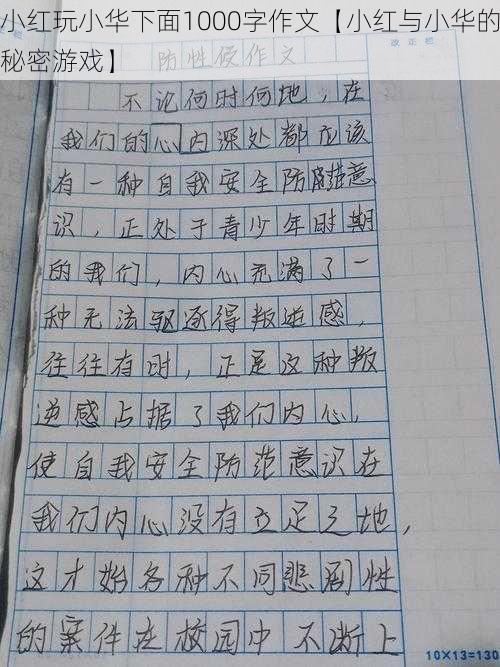 小红玩小华下面1000字作文【小红与小华的
秘密游戏】
改正栏
防性侵作文
不论何时何地，在
我们的心内深处都应该
有一种自我安全防范意
识，正处于青少年时期
的我们，内心充满了一
种无法驱逐得叛逆感，
往往有时，正是这种叛
逆感占据了我们内心，
使自我安全防范意识在
我们内心没有立足之地，
这才始各种不同悲剧性
的案件在校园中不断上
10×13=130